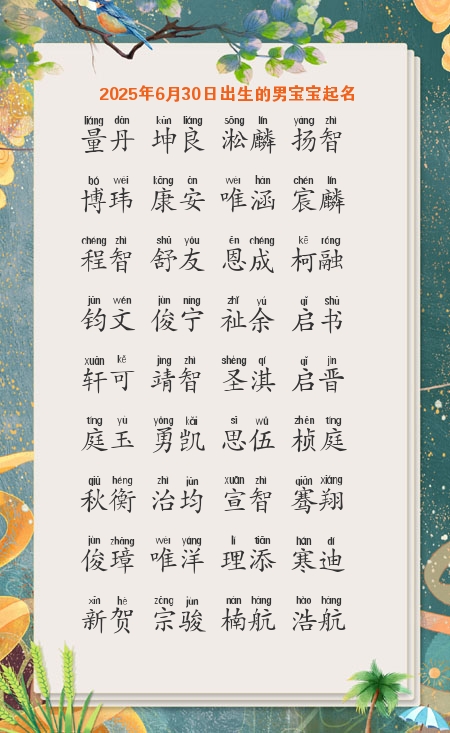 2025年6月30日出生的男宝宝起名
liáng dān kūn liáng sōng lín yáng zhì
量丹 坤良 淞麟 扬智
bó wěi kāng ān wéi hán chén lín
博玮 康安 唯涵 宸麟
chéng zhì shū yǒu ēn chéng kē róng
程智 舒友 恩成 柯融
jūn wén jùn níng zhǐ yú qǐ shū
钧文 俊宁 祉余 启书
xuān kě jìng zhì shèng qí qǐ jìn
轩可 靖智 圣淇 启晋
tíng yù yǒng kǎi sī wǔ zhēn tíng
庭玉 勇凯 思伍 桢庭
qiū héng zhì jūn xuān zhì qiān xiáng
秋衡 治均 宣智 骞翔
jùn zhāng wéi yáng lǐ tiān hán dí
俊璋 唯洋 理添 寒迪
xīn hè zōng jùn nán háng hào háng
新贺 宗骏 楠航 浩航